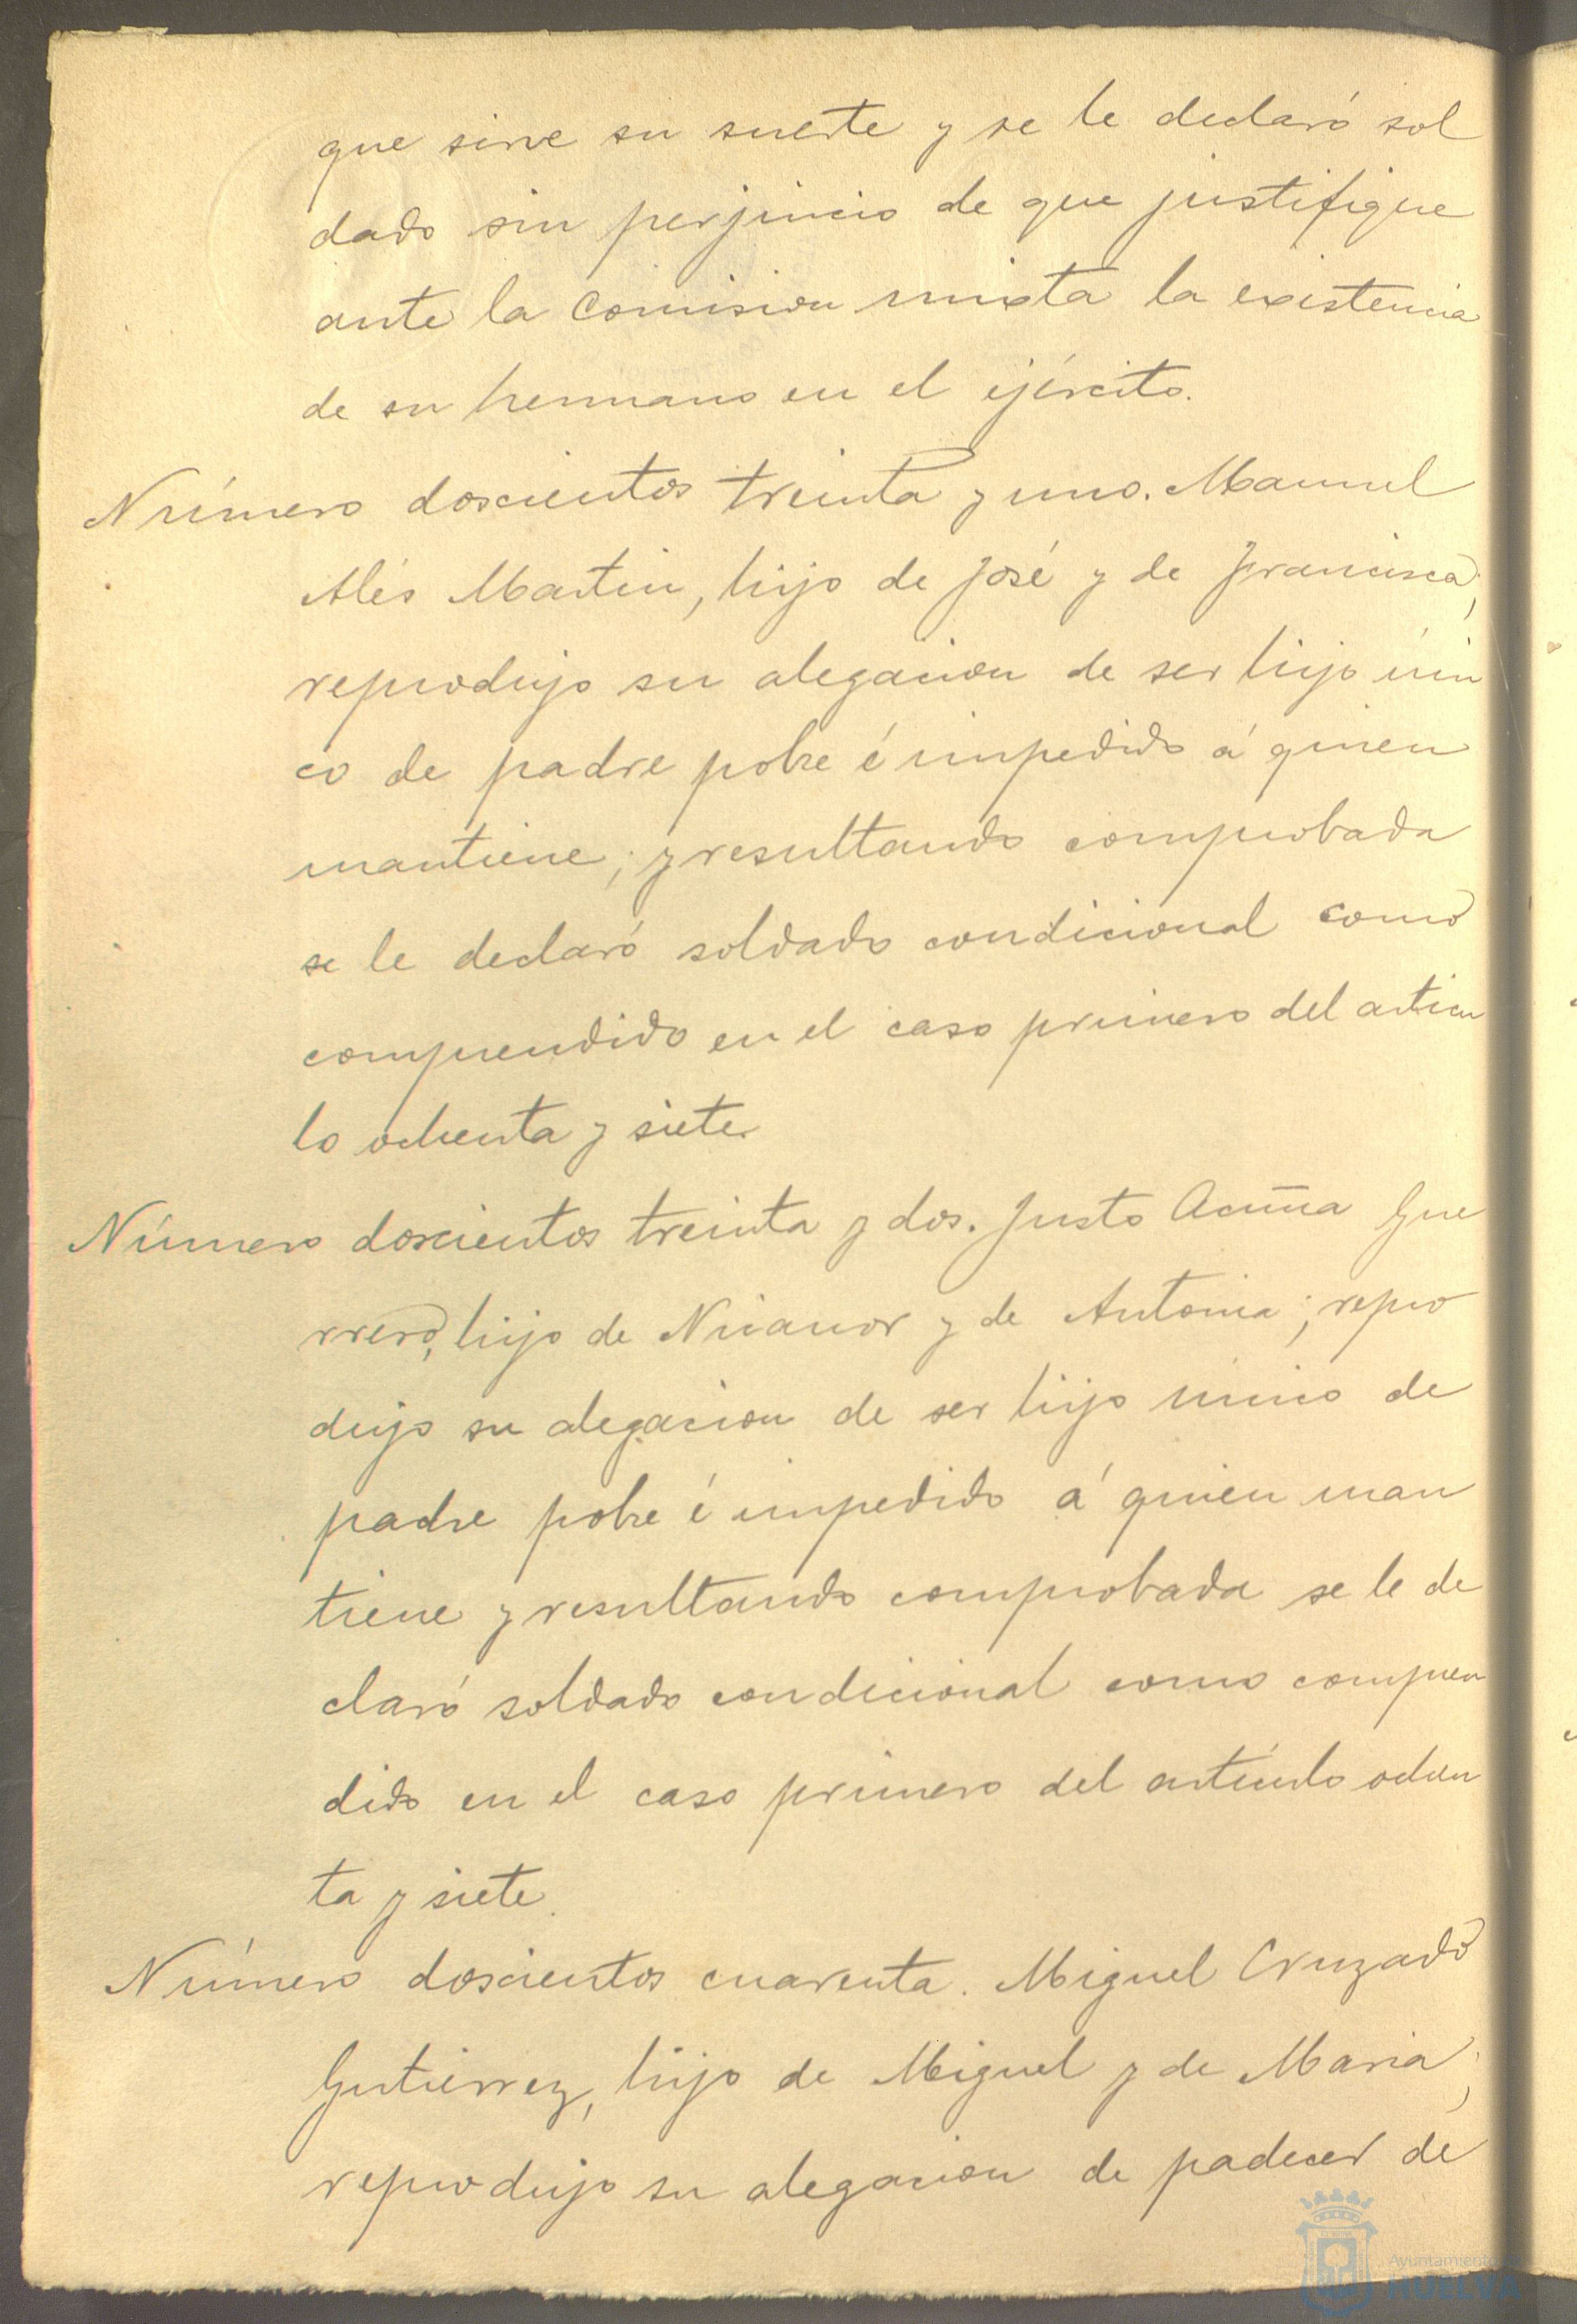 que sirve su suerte y se le declaró sol
dado sin perjuicio de que justifique
ante la Comision mixta la existencia
de su hermano en el ejército.
Número doscientos treinta y uno. Manuel
Alés Martin, hijo de José y de Francisca;
reprodujo su alegacion de ser hijo úni
co de padre pobre é impedido á quien
mantiene; y resultando comprobada
se le declaró soldado condicional como
comprendido en el caso primero del articu
lo ochenta y siete.
Número doscientos treinta y dos. Justo Acuña Gue
rrero, hijo de Nicanor y de Antonia; repro
dujo su alegacion de ser hijo único de
padre pobre é impedido á quien man
tiene y resultando comprobada se le de
claró soldado condicional como compren
dido en el caso primero del artículo ochen
ta y siete.
Número doscientos cuarenta. Miguel Cruzado
Gutierrez, hijo de Miguel y de Maria;
reprodujo su alegacion de padecer de
Ayuntamiento de
HUELVA